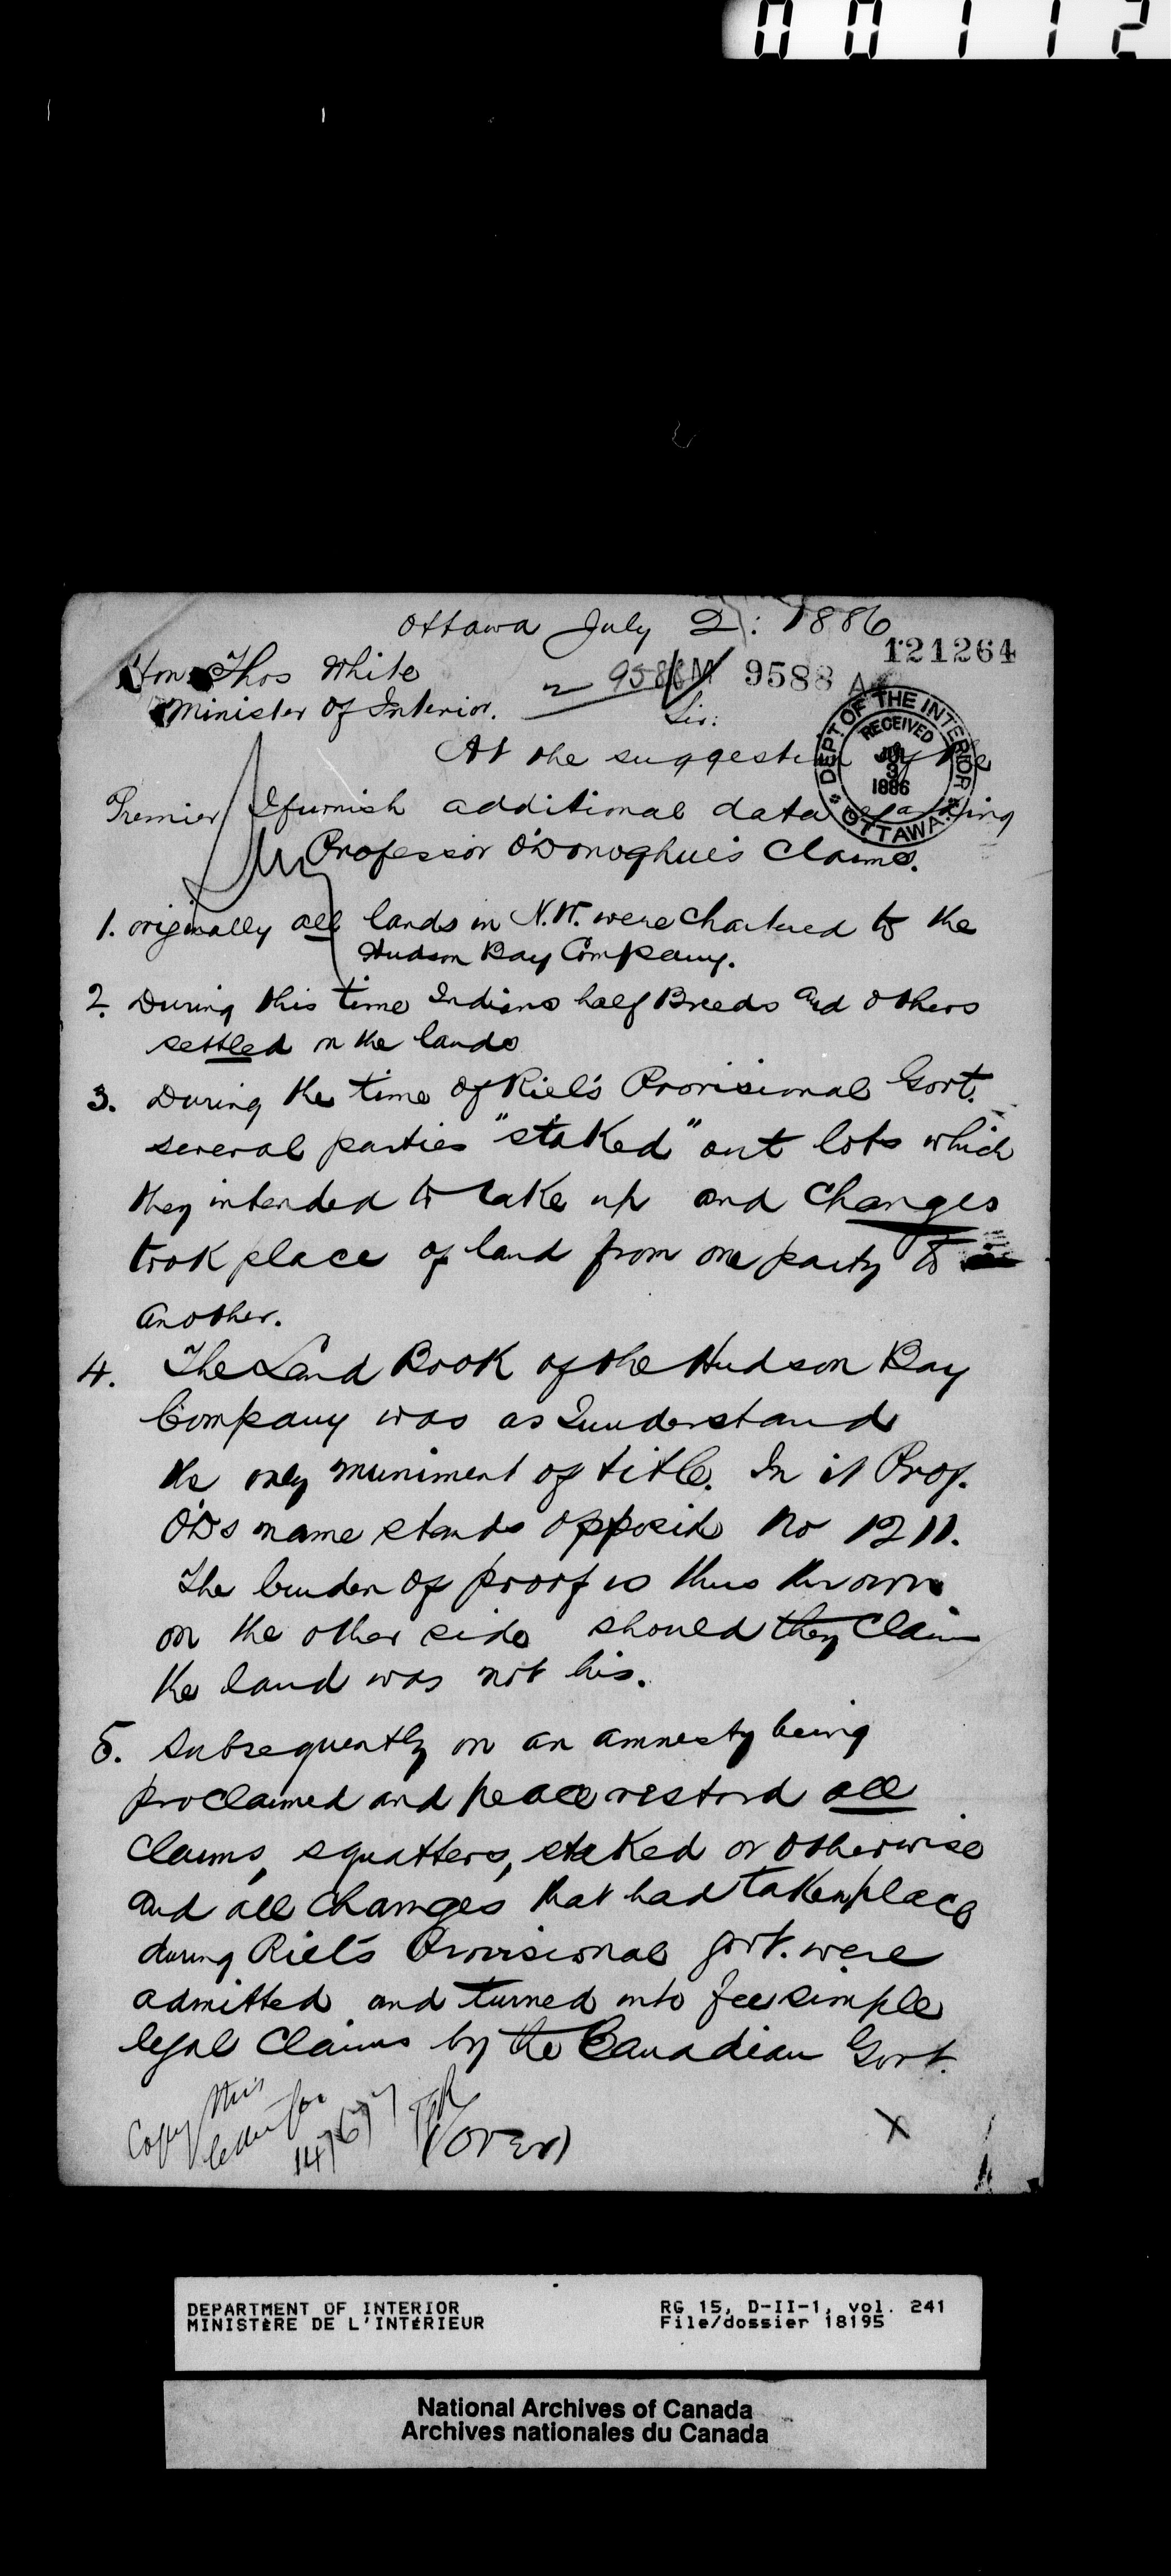 00112
Ottawa July 2: 1886
121264
Hon Thos White
9588 M 9588
Minister of Interior.
Sir:
DEPT OF THE INTERIOR
RECEIVED
JUL
3
1886
OTTAWA
At the suggestion of the
Premier I furnish additional data relating
Professor O'Donoghue's Claims.
1. originally all lands in N.W. were Chartered to the
Hudson Bay Company.
2. During this time Indians half Breeds and others
settled on the lands
3. During the time of Riel's Provisional Govt.
several parties "staked" out lots which
they intended to take up and Changes
took place of land from one party to
another.
4. The Land Book of the Hudson Bay
Company was as I understand
the only muniment of title. In it Prof.
O'Ds name stands opposite No 1211.
The burden of proof is thus thrown
on the other side should they Claim
the land was not his.
5. Subsequently on an amnesty being
proclaimed and peace restord all
Claims, squatters, staked or otherwise
and all Changes that had taken place
during Riel's Provisional govt. were
admitted and turned into fee simple
legal Claims by the Canadian Govt.
Copy this
letter for
(over)
X
DEPARTMENT OF INTERIOR
MINISTÈRE DE L'INTÉRIEUR
RG 15, D-II-1, vol. 241
File/dossier 18195
National Archives of Canada
Archives nationales du Canada